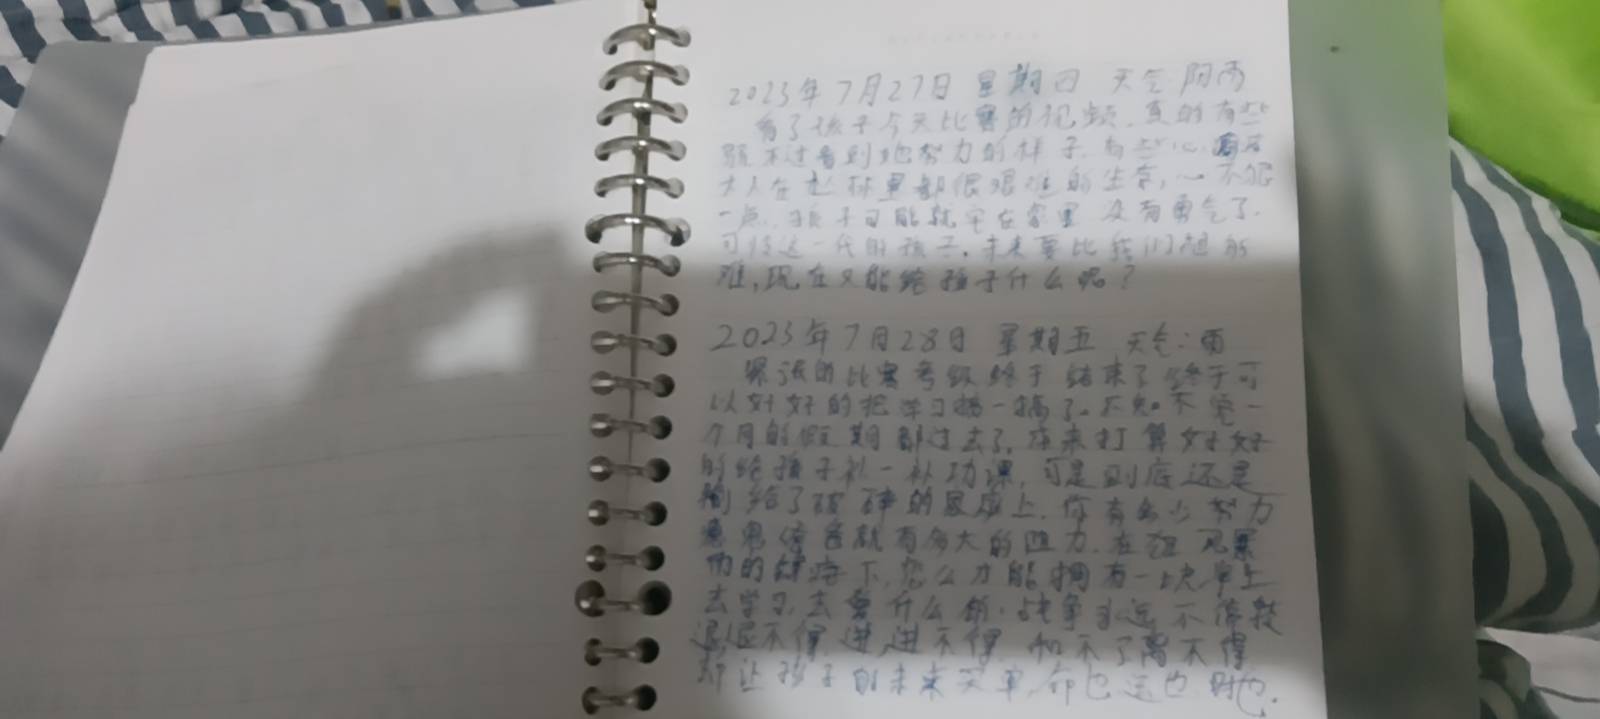 2023年7月27日 星期四 天气 阴雨
看了孩子今天比赛的视频,真的有些
不过看到她努力的样子,有些心
大人在 都很艰难的生存,一不
一点,孩子可能就 在家里 没有勇气了.
可 这一代的孩子,未来要比我们 的
难,现在又能给孩子什么呢?
2023年7月28日 星期五 天气:雨
紧张的比赛考级终于结束了,终于可
以好好的把学习搞一搞了。不知不觉一
个月的假期都过去了,本来打算好好
的给孩子补一补功课,可是到底还是
输给了破碎的 上,你有多少努力
就有多大的阻力,在狂风暴
雨的 下,怎么才能拥有一块
去学习,去 什么 ,战争永远不
退,退不得,进,进不得,和不了离不得
却让孩子的未来买单,命也运也时也.